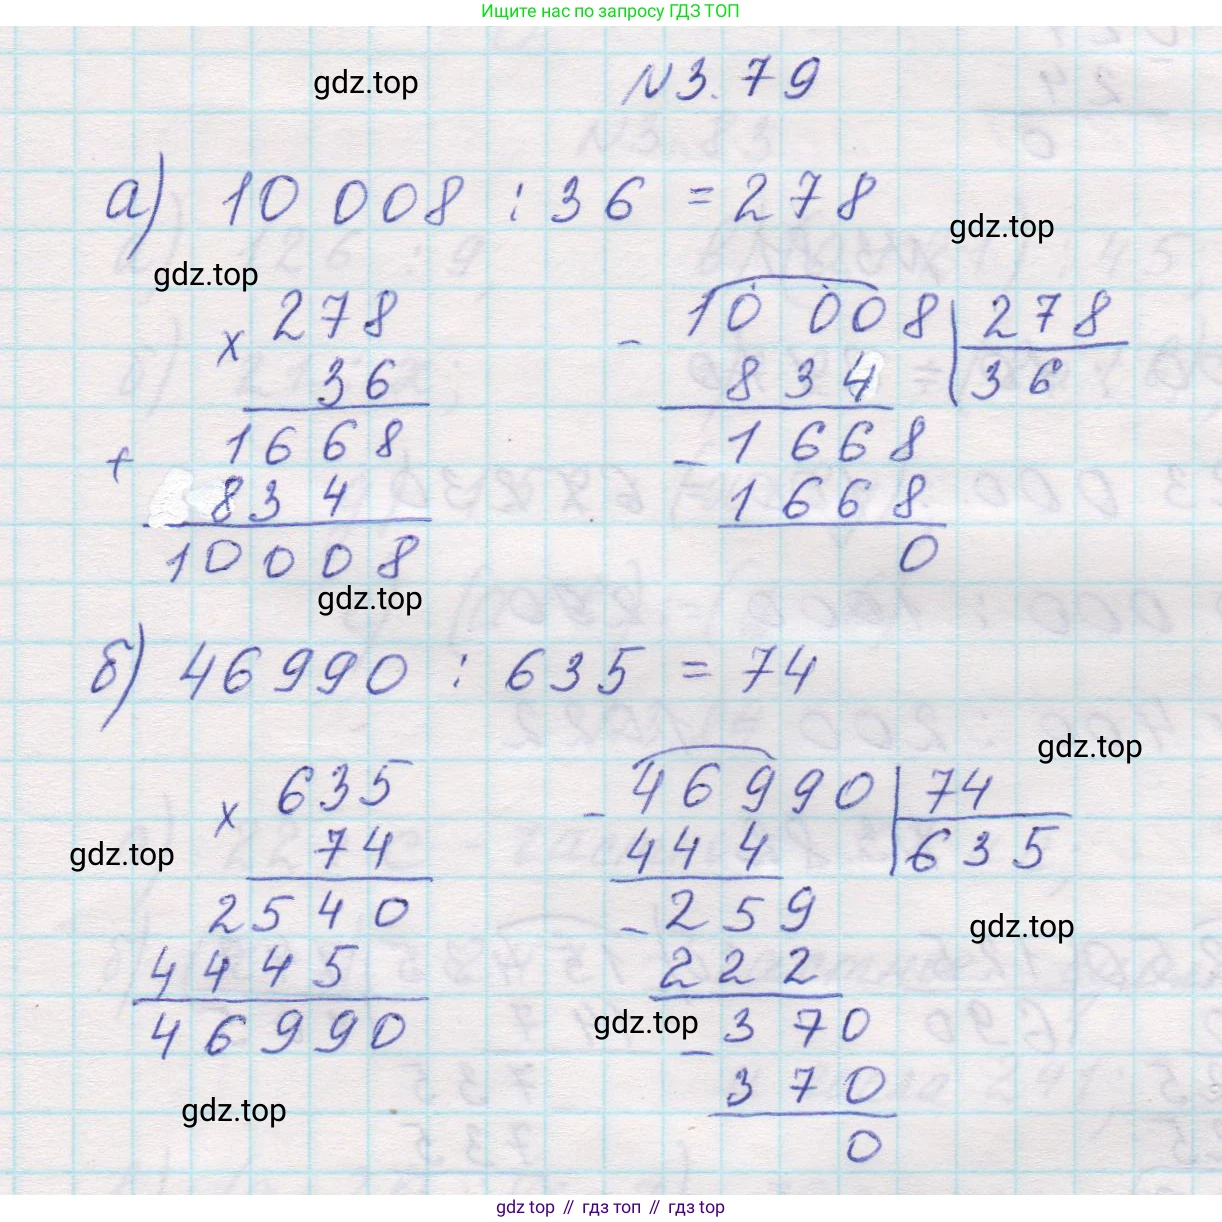 Ищите нас по запросу ГДЗ ТОП
gdz.top
N3.79
а) 10 008 : 36 = 278
gdz.top
gdz.top
× 278
36
+ 1668
834
10008
- 10 008 | 278
834 | 36
- 1668
1668
0
gdz.top
б) 46990 : 635 = 74
gdz.top
× 635
74
2540
4445
46990
gdz.top
- 46990 | 74
444 | 635
- 259
222
- 370
370
0
gdz.top
gdz.top
gdz.top
gdz.top // гдз топ // гдз top